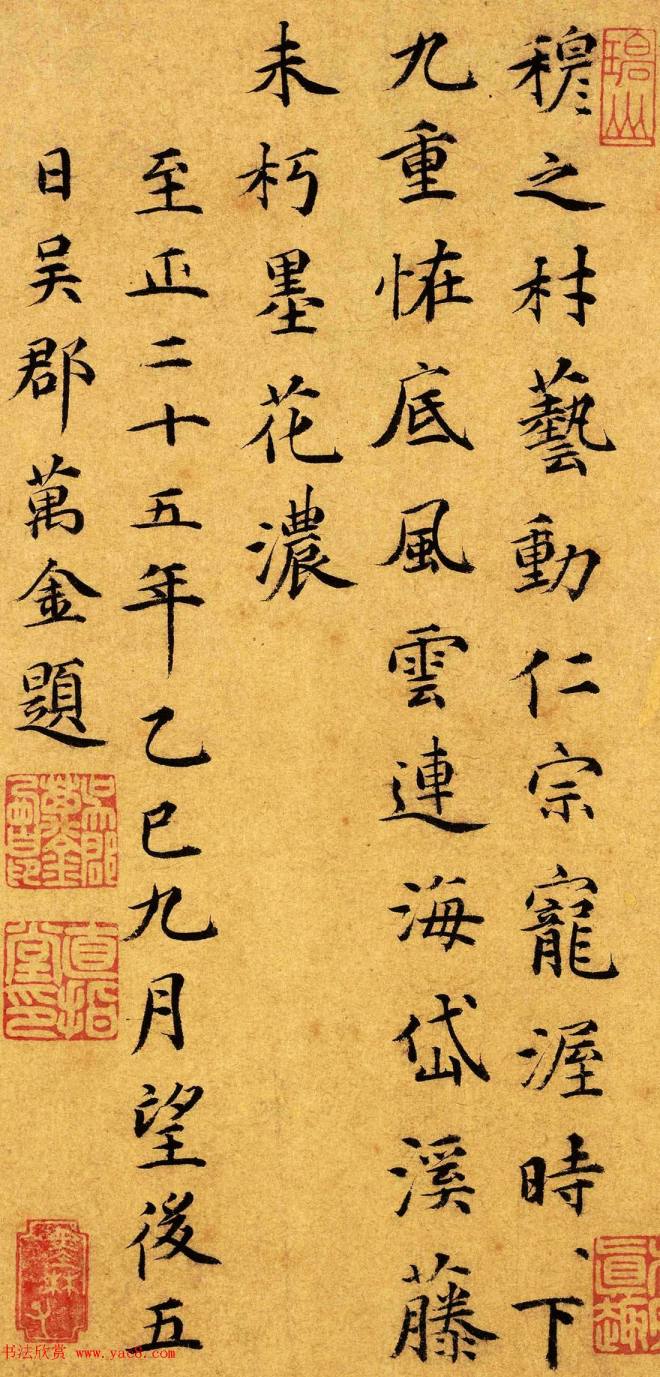 穆之材藝動仁宗寵渥時、下
九重恠底風雲連海岱溪藤
未朽墨花濃
至正二十五年乙巳九月望後五
日吳郡萬金題
直指堂印
书法欣赏 www.yac8.com